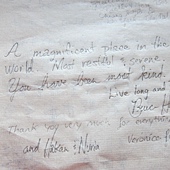 A magnificent place in the
World. Most restful & serene.
You have been most kind.
Live long and
Thank you very much for everything
Veronica
and Hakan & Nuria